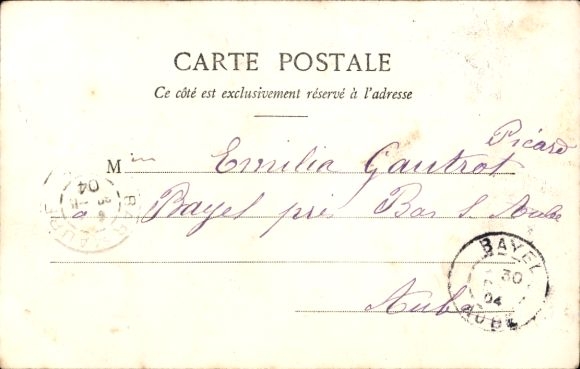 CARTE POSTALE
Ce côté est exclusivement réservé à l'adresse
Picard
Min Emilia Gautrot
à Bayel près Bar s. Aube
Aube
BAYEL
30
04
AUBE
04